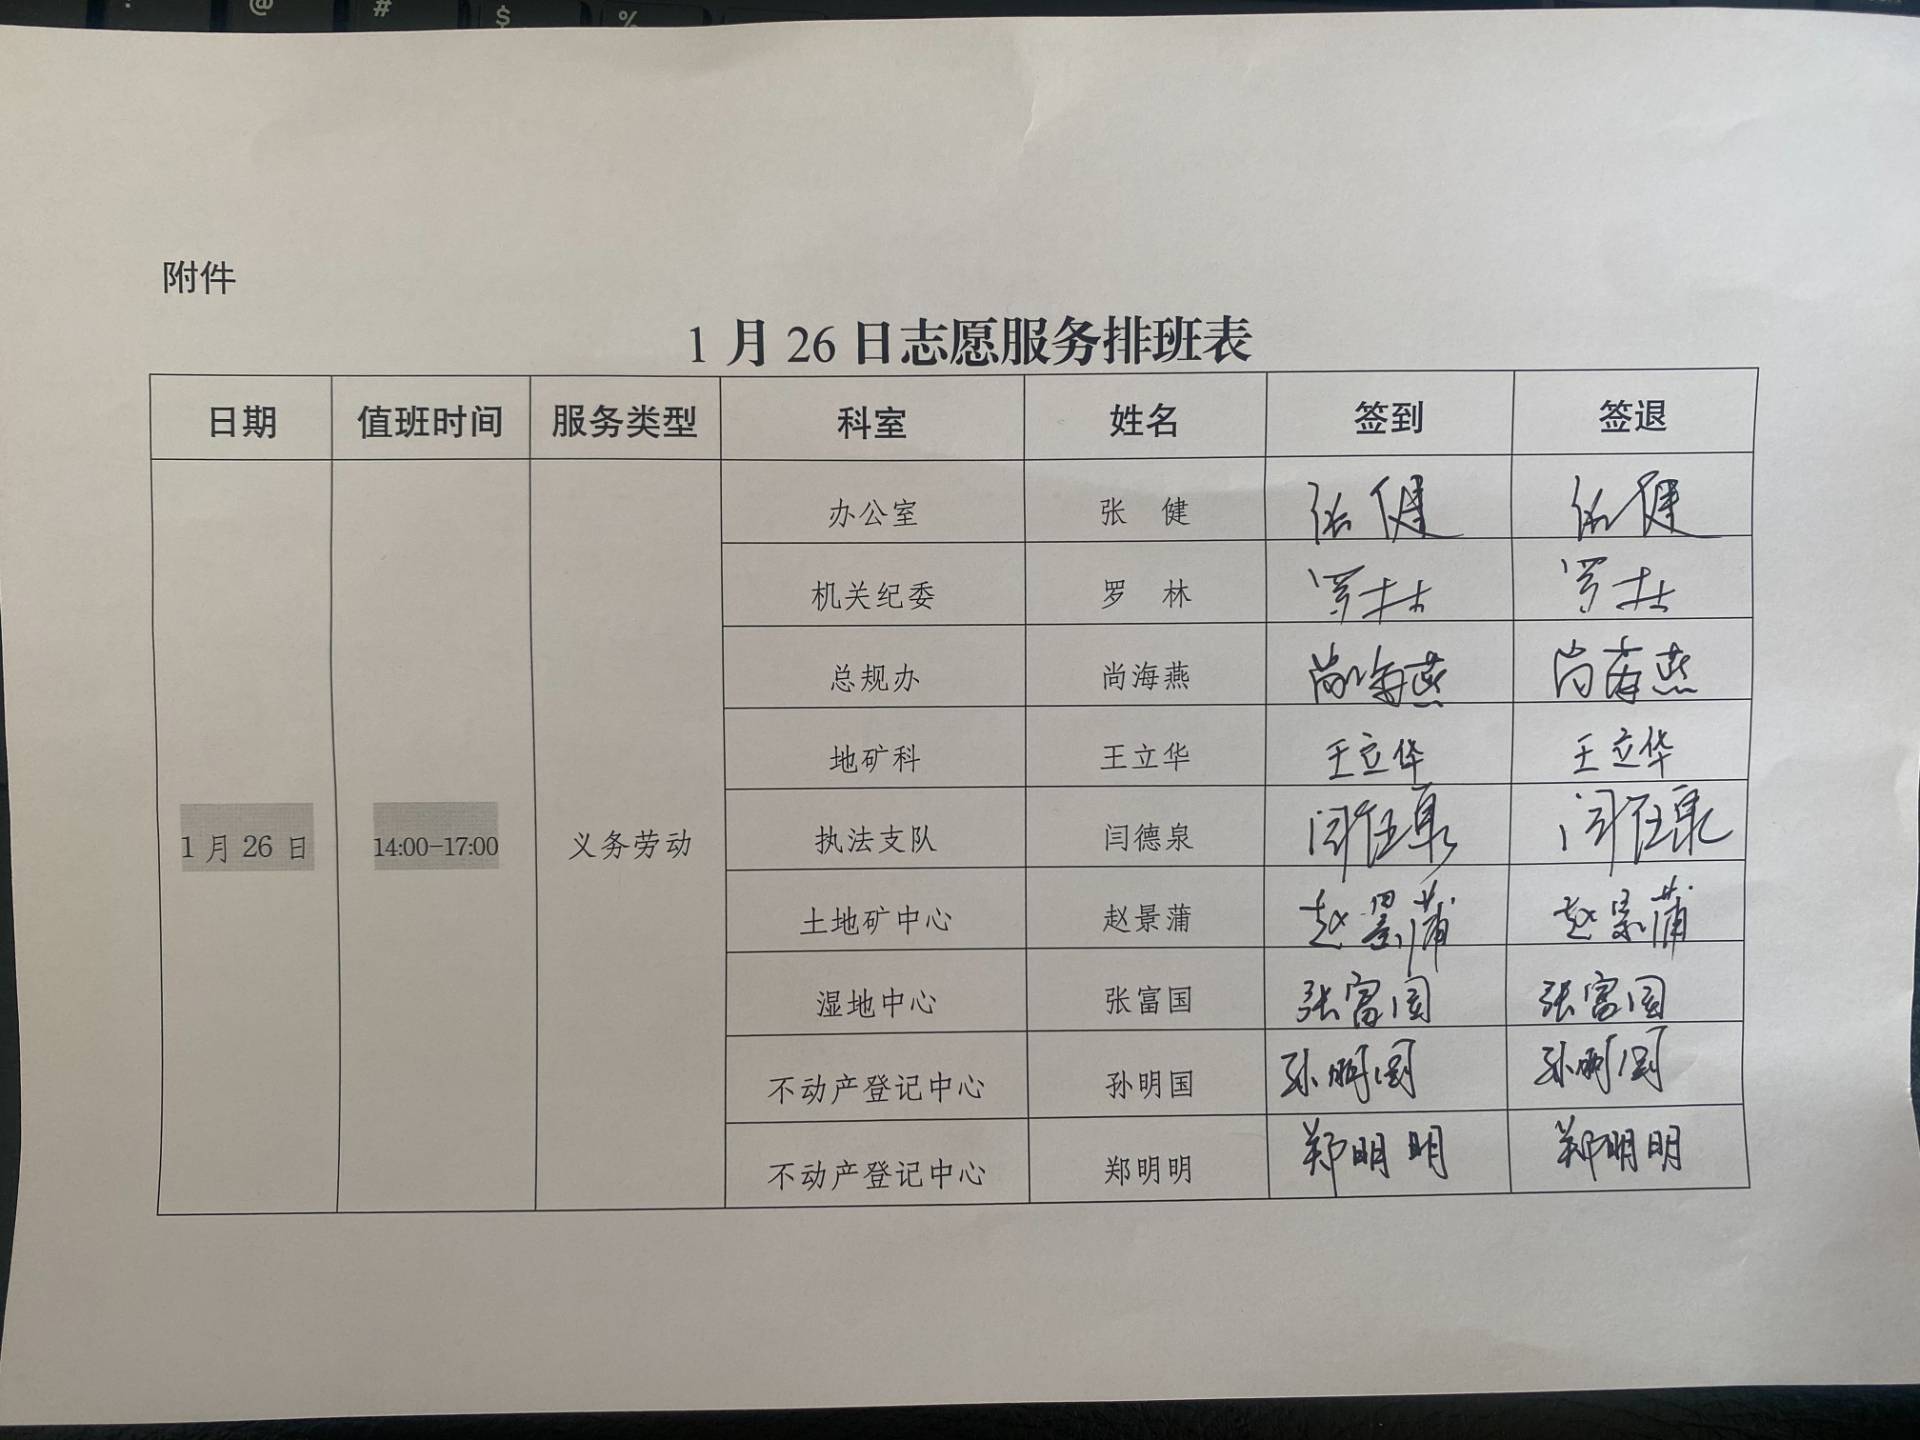 附件
1 月 26 日志愿服务排班表
日期 值班时间 服务类型 科室 姓名 签到 签退
办公室 张 健 张健 张健
机关纪委 罗 林 罗林 罗林
总规办 尚海燕 尚海燕 尚海燕
地矿科 王立华 王立华 王立华
1 月 26 日 14:00-17:00 义务劳动 执法支队 闫德泉 闫德泉 闫德泉
土地矿中心 赵景蒲 赵景蒲 赵景蒲
湿地中心 张富国 张富国 张富国
不动产登记中心 孙明国 孙明国 孙明国
不动产登记中心 郑明明 郑明明 郑明明